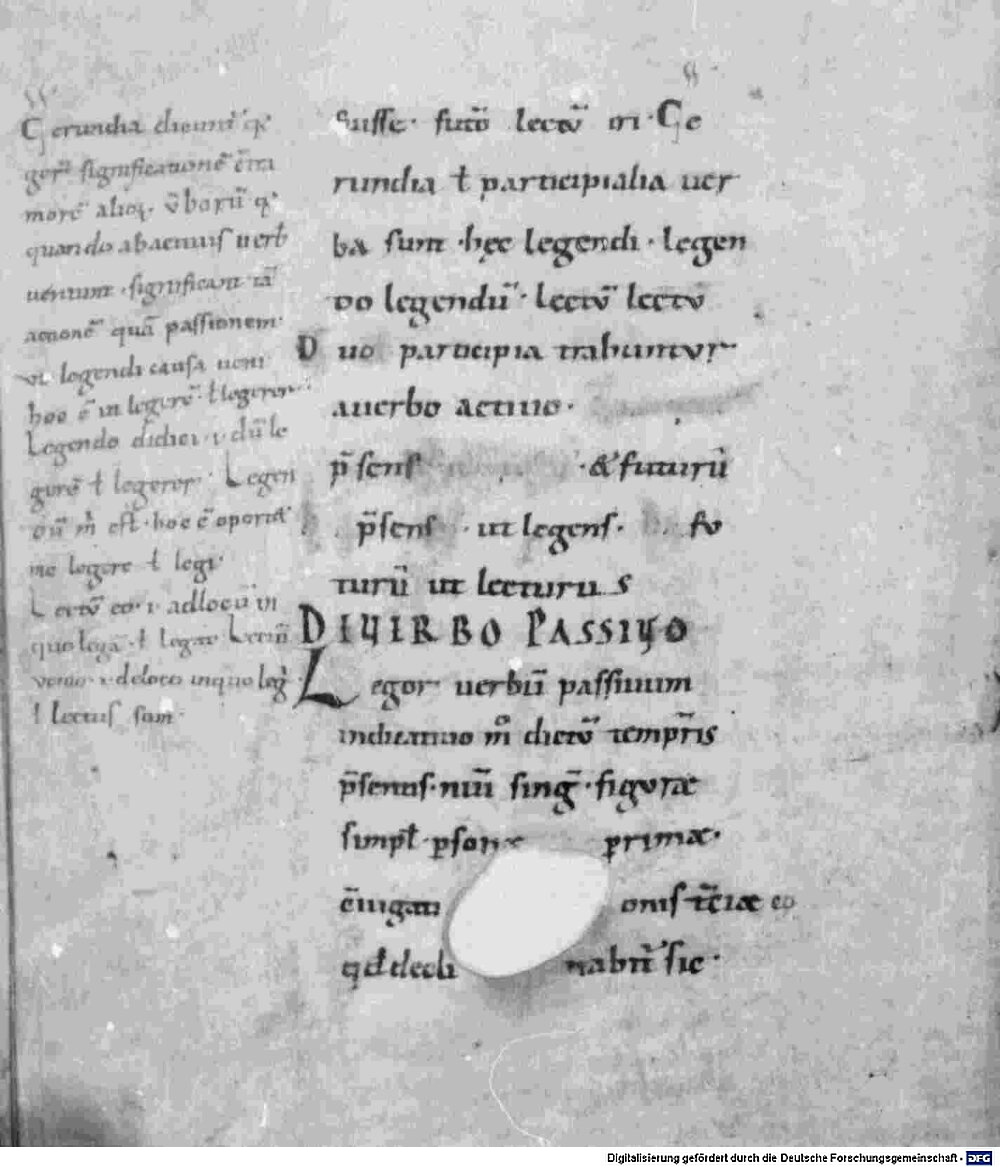 Gerundia dicunt̄ q̄
gerū significationē c̄m
morē alioꝝ v̄borū q̄
quando abactiuis uerb
ueniunt · significant tā
actionē quā passionem·
ut legendi causa ueni
hoc ē in legere · ł legerer
Legendo didici · i · dū le
gerē ł legerer · Legen
dū m̄ est · hoc ē oportet
me legere ł legi·
Lectū eo · i · ad locū in
quo legā · ł legar Lectu
venio · i · deloco in quo leḡ
ł lectus sum ·
uisse · futō lectū iri · Ge
rundia ł participialia uer
ba sunt · hęc legendi · legen
do legendū · lectū lectu
Duo participia trahuntur
auerbo actiuo ·
p̄sens · & futurū
p̄sens · ut legens · fu
turū ut lecturus
DE VERBO PASSIVO
Legor uerbū passiuum
indicatiuo m̊ dictū temp̄ris
p̄sentis · nūi sinḡ · figuræ
simpł · psonæ primæ ·
c̄iugati onis t̄ciæ
qđ decli nabit̄ sic ·
Digitalisierung gefördert durch die Deutsche Forschungsgemeinschaft - DFG